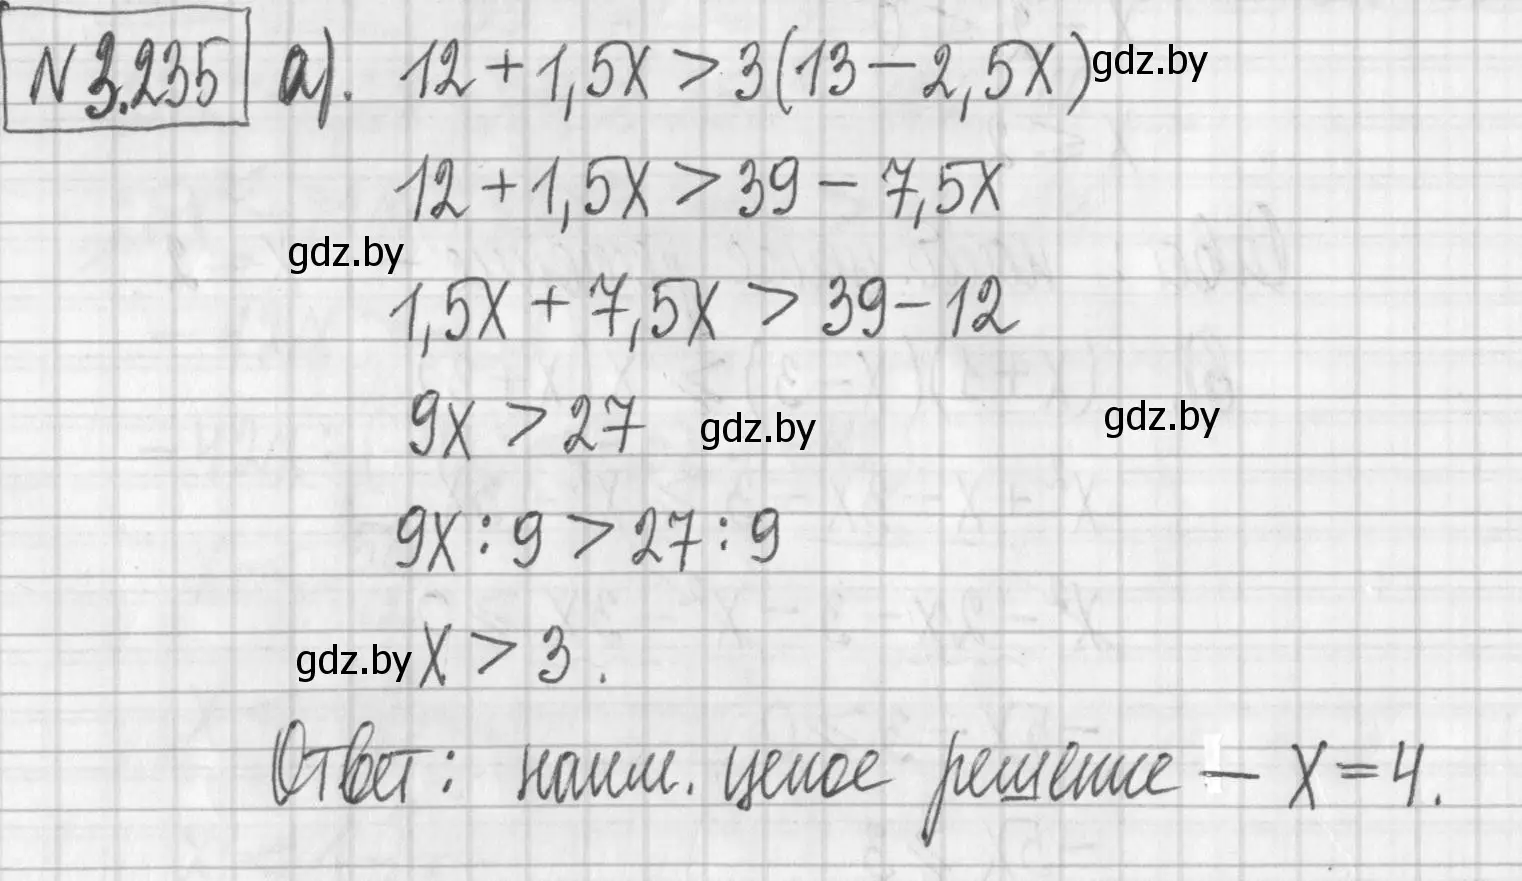 N 3.235 а). 12 + 1,5x > 3(13 - 2,5x) gdz.by
12 + 1,5x > 39 - 7,5x
gdz.by
1,5x + 7,5x > 39 - 12
9x > 27 gdz.by gdz.by
9x : 9 > 27 : 9
gdz.by x > 3.
Ответ: наим. целое решение - x = 4.